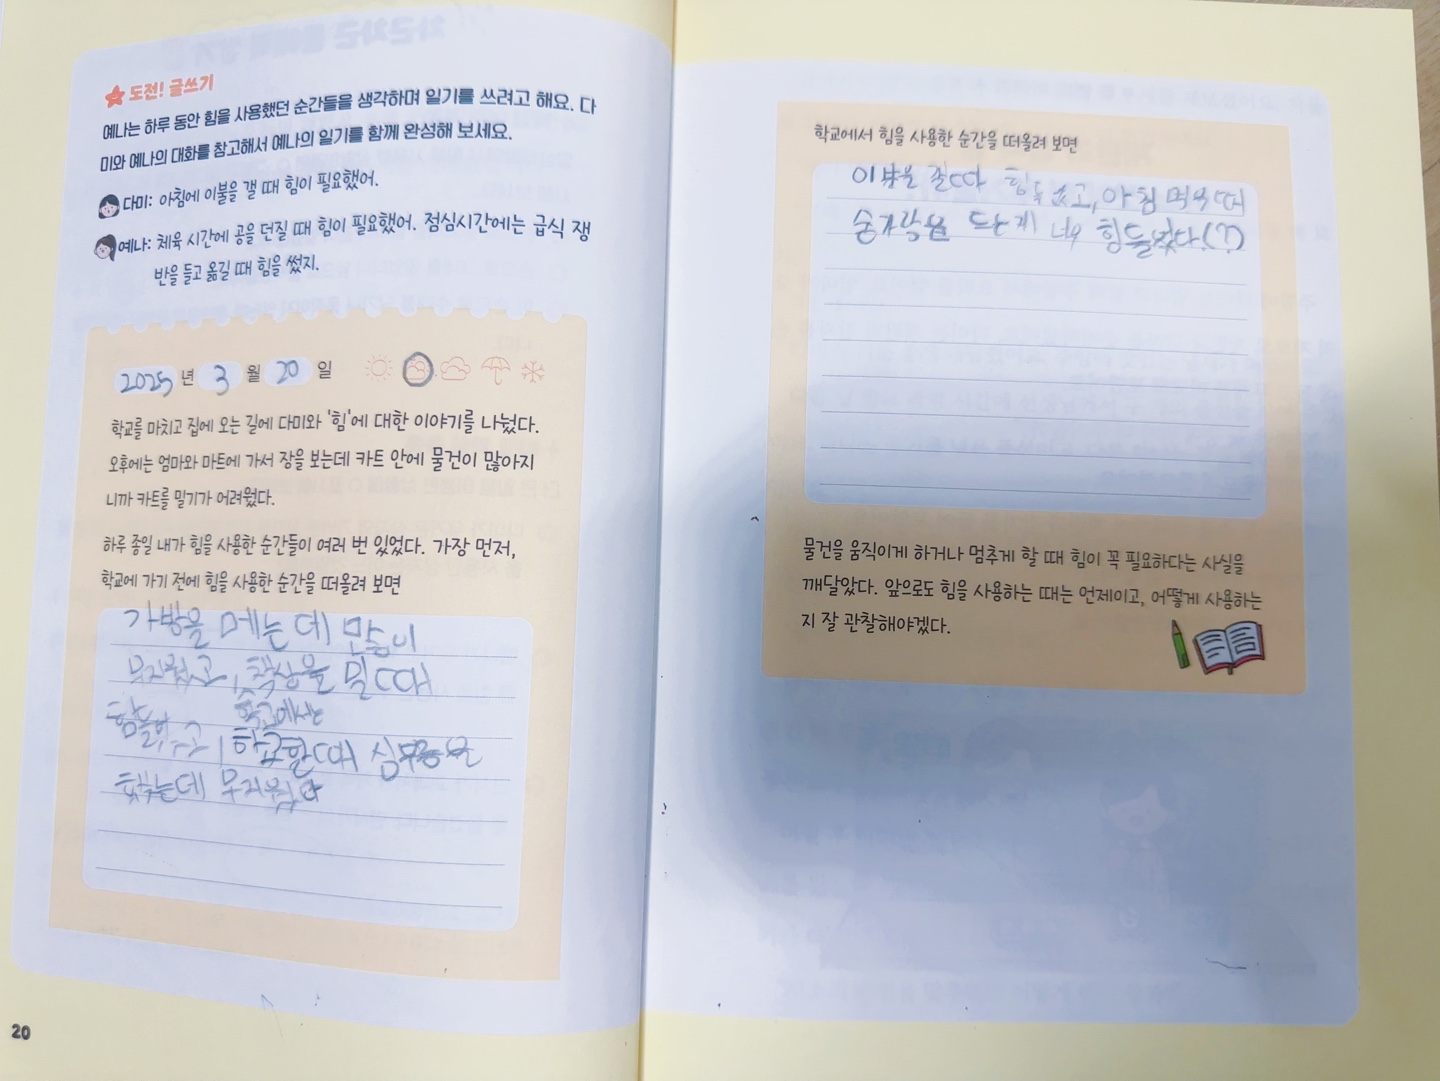 도전! 글쓰기
예나는 하루 동안 힘을 사용했던 순간들을 생각하며 일기를 쓰려고 해요. 다
미와 예나의 대화를 참고해서 예나의 일기를 함께 완성해 보세요.
다미: 아침에 이불을 갤 때 힘이 필요했어.
예나: 체육 시간에 공을 던질 때 힘이 필요했어. 점심시간에는 급식 쟁
반을 들고 옮길 때 힘을 썼지.
2025 년 3 월 20 일
학교를 마치고 집에 오는 길에 다미와 '힘'에 대한 이야기를 나눴다.
오후에는 엄마와 마트에 가서 장을 보는데 카트 안에 물건이 많아지
니까 카트를 밀기가 어려웠다.
하루 종일 내가 힘을 사용한 순간들이 여러 번 있었다. 가장 먼저,
학교에 가기 전에 힘을 사용한 순간을 떠올려 보면
가방을 메는데
무거웠고, 책상을 밀 때
학교에서는
하교할 때
했는데 무거웠다
20
학교에서 힘을 사용한 순간을 떠올려 보면
이불을 갤 때 힘들었고, 아침 먹을 때
숟가락을 드는게 너무 힘들었다(?)
물건을 움직이게 하거나 멈추게 할 때 힘이 꼭 필요하다는 사실을
깨달았다. 앞으로도 힘을 사용하는 때는 언제이고, 어떻게 사용하는
지 잘 관찰해야겠다.